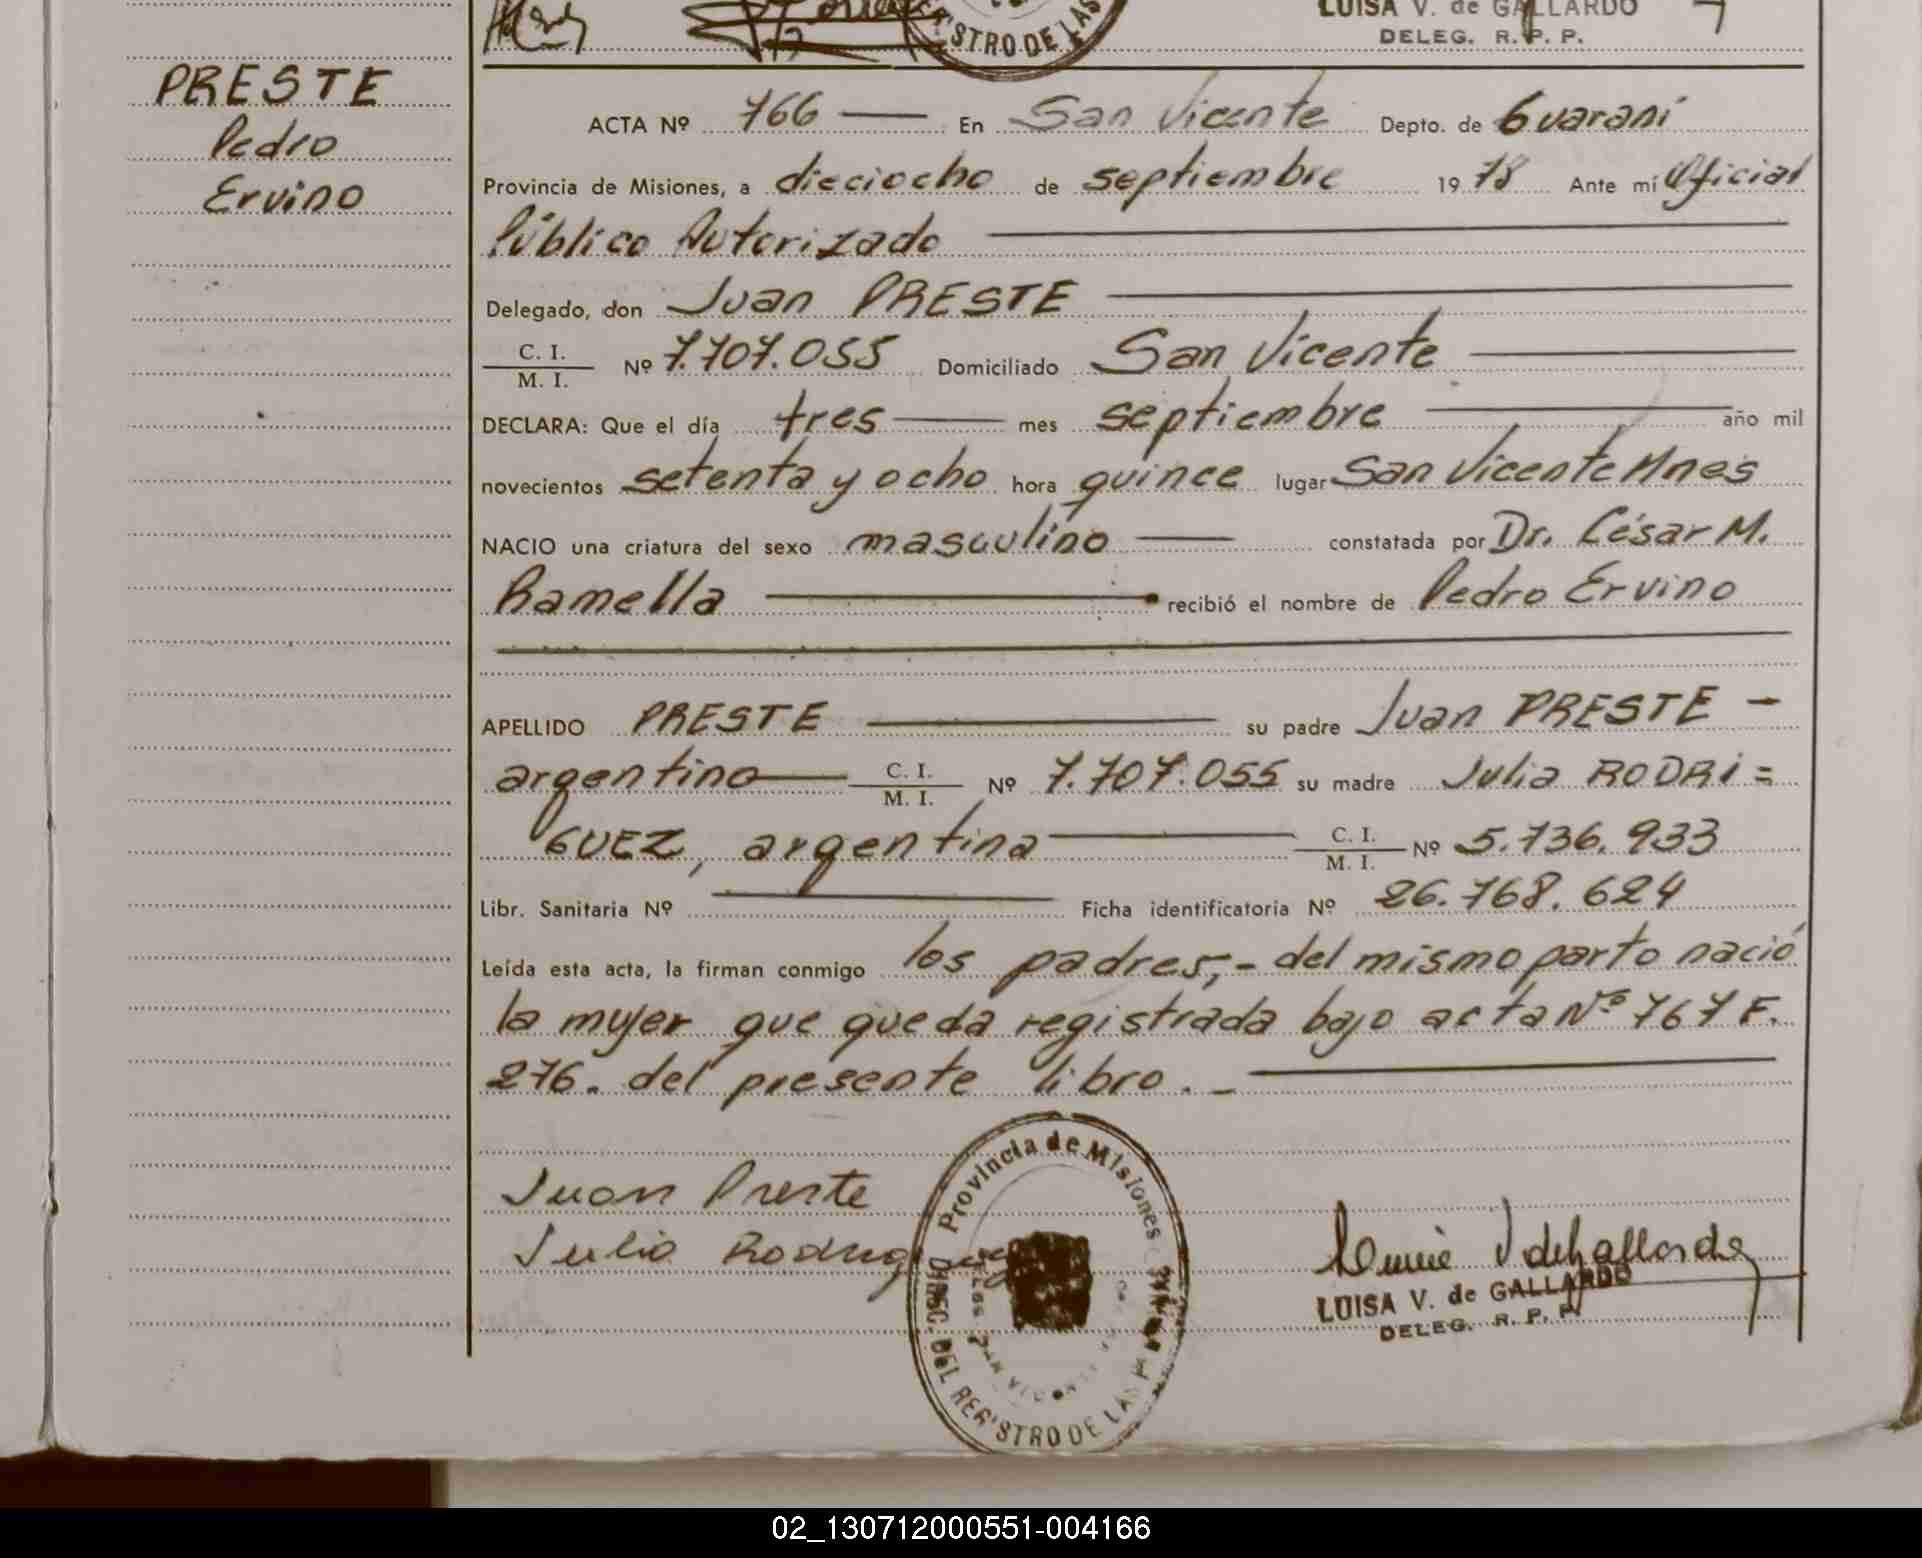 LUISA V. de GALLARDO
DELEG. R. P. P.
STRO DE LAS
PRESTE
Pedro
Ervino
ACTA Nº 766 En San Vicente Depto. de Guaraní
Provincia de Misiones, a dieciocho de septiembre 1978 Ante mí Oficial
Público Autorizado
Delegado, don Juan PRESTE
C. I.
M. I. Nº 7.707.055 Domiciliado San Vicente
DECLARA: Que el día tres mes septiembre año mil
novecientos setenta y ocho hora quince lugar San Vicente Mnes
NACIO una criatura del sexo masculino constatada por Dr. César M.
Ramella recibió el nombre de Pedro Ervino
APELLIDO PRESTE su padre Juan PRESTE -
argentino C. I.
M. I. Nº 7.707.055 su madre Julia RODRI=
GUEZ, argentina C. I.
M. I. Nº 5.736.933
Libr. Sanitaria Nº Ficha identificatoria Nº 26.768.624
Leída esta acta, la firman conmigo los padres,- del mismo parto nació
la mujer que queda registrada bajo acta Nº 767 F.
276. del presente libro.-
Juan Preste
Julia Rodriguez
Provincia de Misiones
DIREC. DEL REGISTRO DE LAS
LUISA V. de GALLARDO
DELEG. R. P. P.
02_130712000551-004166